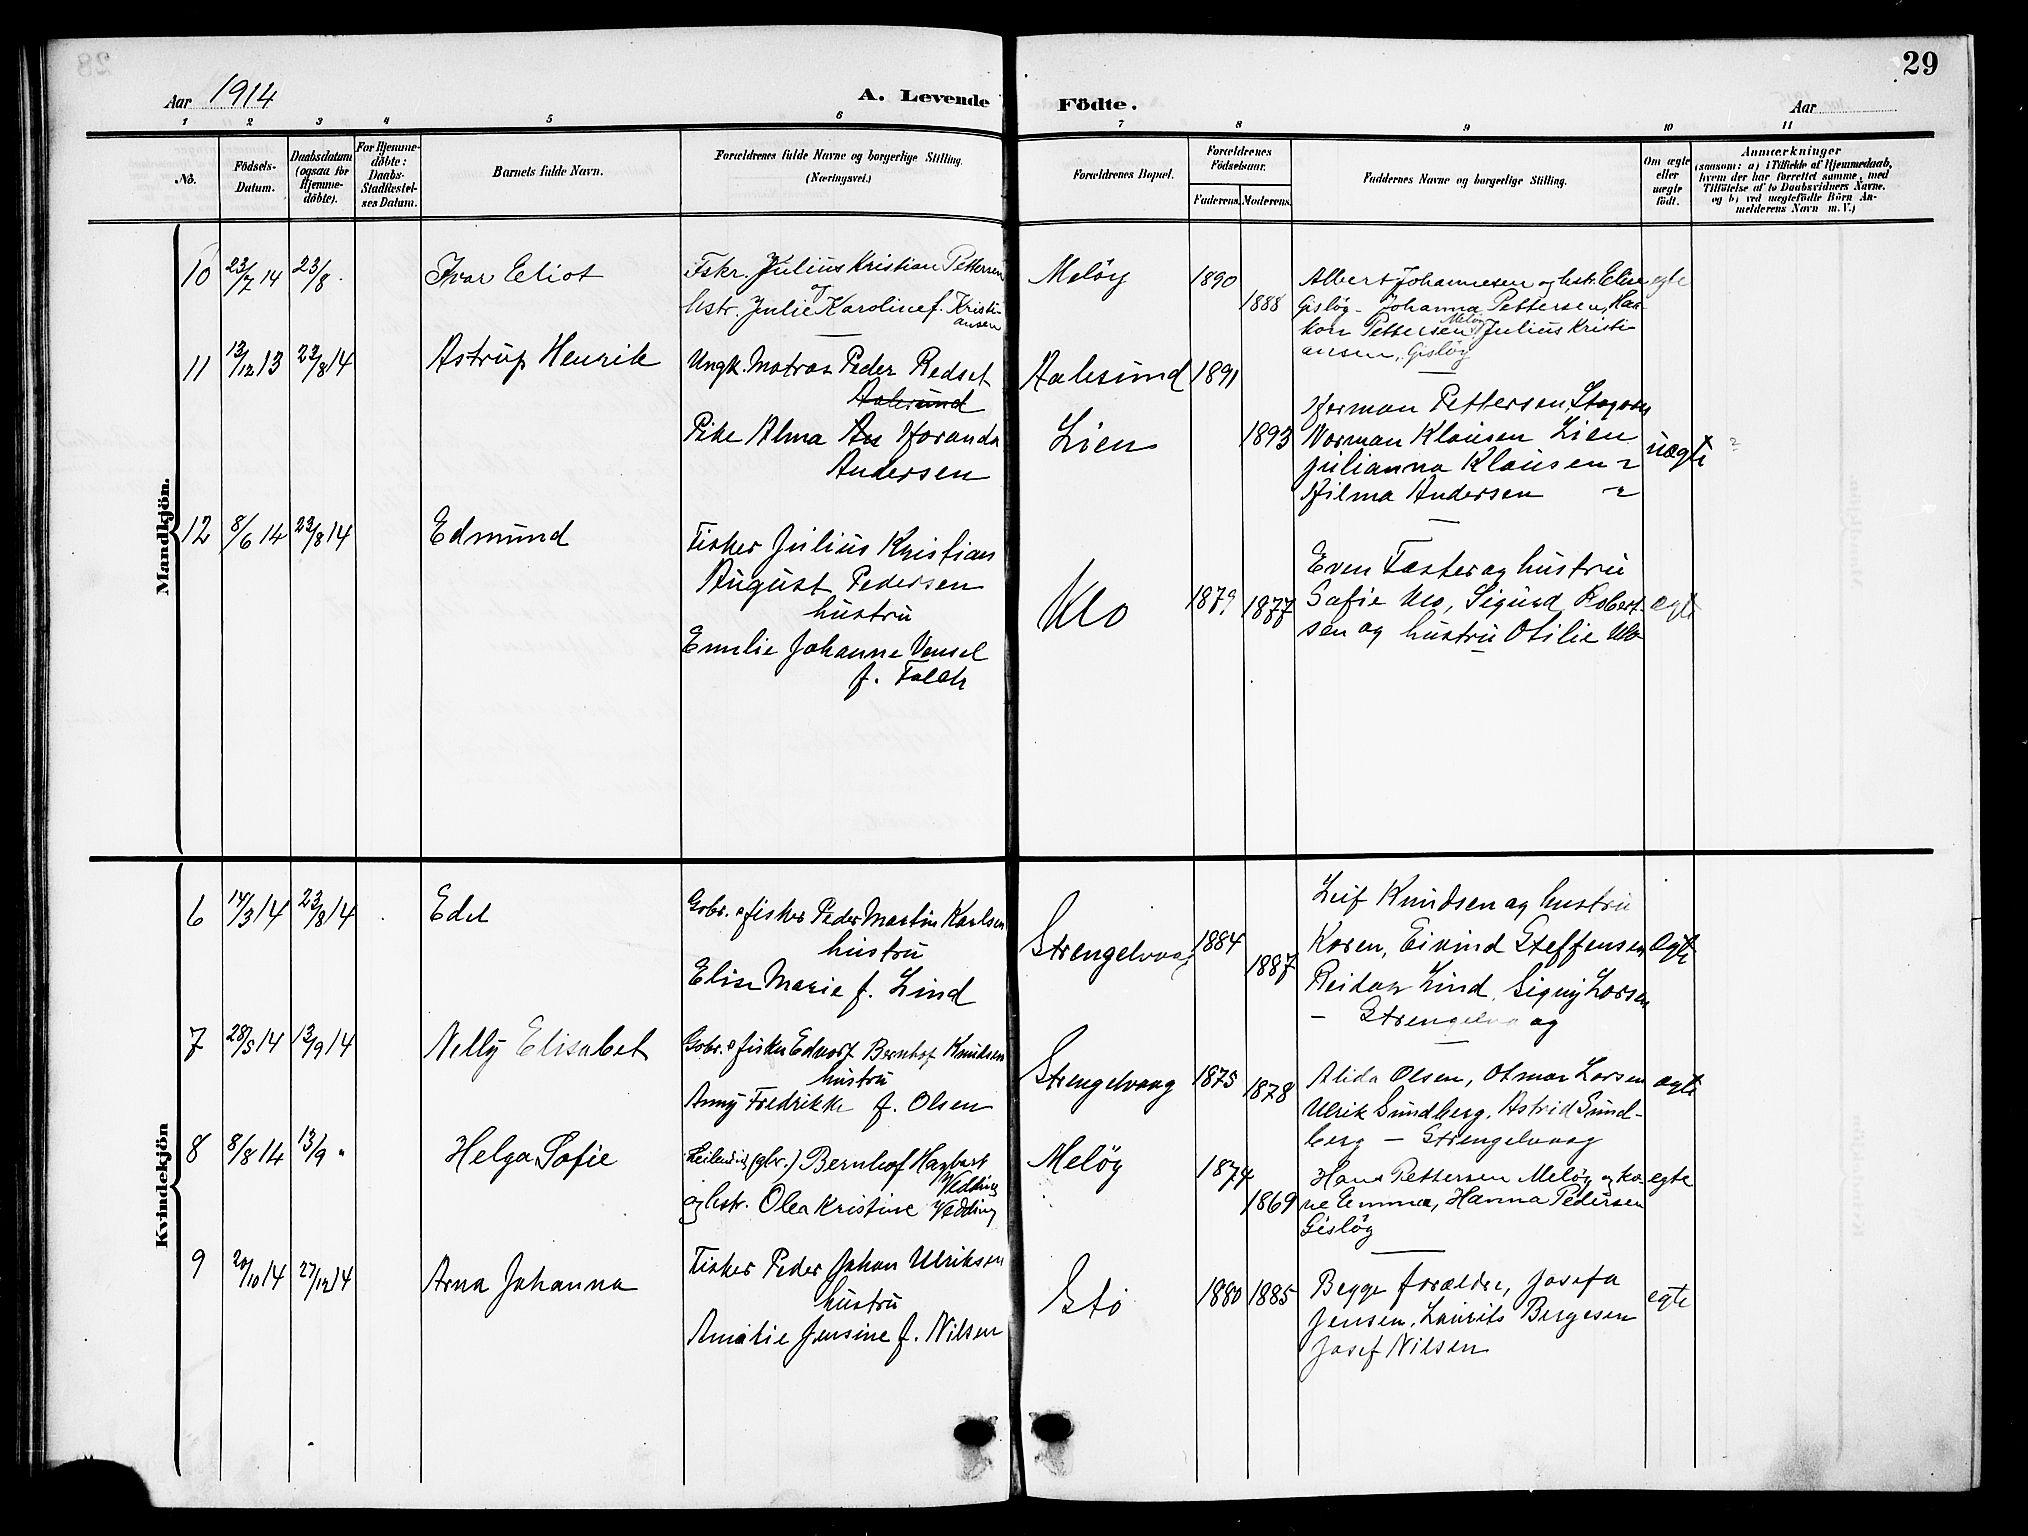 29
Aar 1914
A. Levende
Födte.
Aar
1 2 3 4 5 6 7 8 9 10 11
No.
Födsels-
Datum.
Daabsdatum
(ogsaa for
Hjemme-
døbte).
For Hjemme-
døbte:
Daabs-
Stadfæstel-
ses Datum.
Barnets fulde Navn.
Forældrenes fulde Navne og borgerlige Stilling.
(Næringsvei.)
Forældrenes Bopæl.
Forældrenes
Födselsaar.
Faderens. Moderens.
Faddernes Navne og borgerlige Stilling.
Om ægte
eller
uægte
født.
Anmærkninger
(saasom: a) i Tilfælde af Hjemmedaab,
hvem der har forrettet samme, med
Tilføielse af to Daabsvidners Navne.
og b) ved uægtefödte Börn An-
melderens Navn m. V.)
Mandkjön.
10 23/7 14 23/8 .
Ivar Eliot
Fskr. Julius Kristian Pettersen
og
hstr. Julie Karoline f. Kristi-
ansen
Meløy
1890
1888
Albert Johannesen og hstr. Elise
Gisløy - Johanna Pettersen, Haa-
kon Pettersen Meløy, Julius Kristi-
ansen, Gisløy
egte
11 13/12 13 23/8 14
Astrup Henrik
Ungk. Matros Peder Redset
Aalesund
Pike Alma An Horanda
Andersen
Aalesund
Lien
1891
1893
Herman Pettersen,
Norman Klausen Lien
Julianna Klausen "
Hilma Andersen "
uægte
12 8/6 14 23/8 14
Edmund
Fisker Julius Kristian
August Pedersen
hustru
Emelie Johanne Vensel
f. Falch
Klo
1879 1877
Even Faster og hustru
Sofie Klo, Sigurd Robert-
sen og hustru Otilie Klo
ægte
Kvindekjön
6 14/3 14 23/8 14
Edel
Gbr. & fisker Peder Martin Karlsen
hustru
Elise Marie f. Lind
Strengelvaag
1884
1887
Leif Knudsen og hustru
Karen, Eivind Steffensen
Reidar Lind, Signy Larsen
- Strengelvaag
Egte
7 28/5 14 13/9 14
Nelly Elisabet
Gbr. & fisker Edvart Bernhof Knudsen
hustru
Anny Fredrikke f. Olsen
Strengelvaag
1875
1878
Alida Olsen, Otmar Larsen
Ulrik Sundberg, Astrid Sund-
berg - Strengelvaag
ægte
8 8/8 14 13/9 "
Helga Sofie
Leilending (gbr.) Bernhof Hagbart
Vedding
og hstr. Olea Kristine Vedding
Meløy
1874
1869
Hans Pettersen Meløy og ko-
ne Emma, Hanna Pedersen
Gisløy
egte
9 20/10 14 27/12 14
Arna Johanna
Fisker Peder Johan Ulriksen
hustru
Amalie Jensine f. Nilsen
Stø
1880 1885
Begge forældre, Josefa
Jensen, Laurits Bergesen
Josef Nilsen
egte